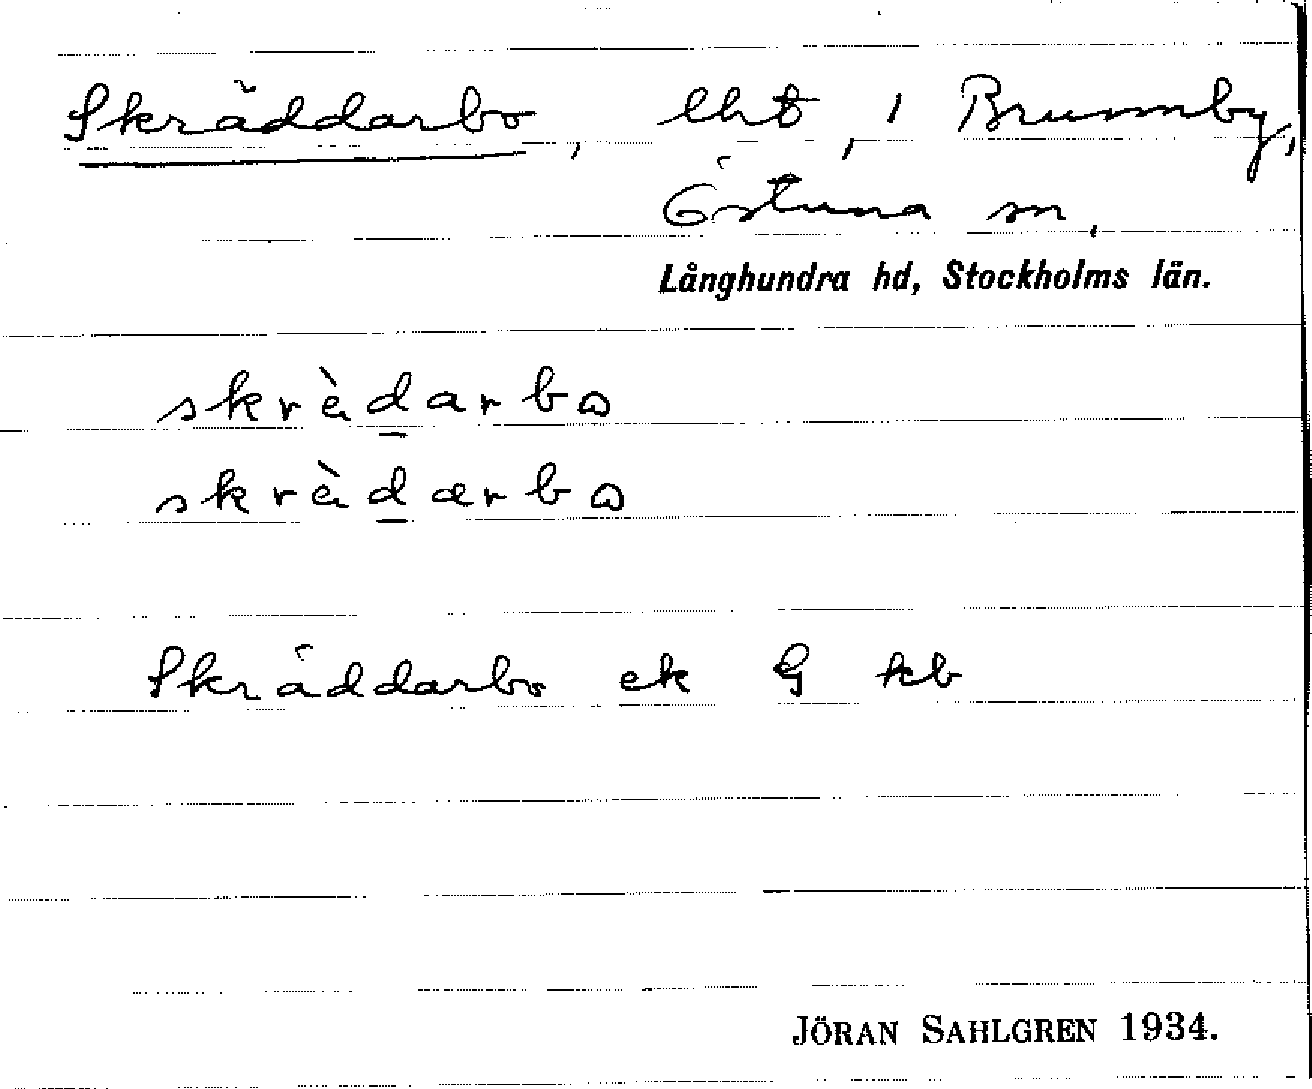 Skräddarbo, lht, i Brunnby,
Östuna sn,
Långhundra hd, Stockholms län.
skrä̀d̲arbω
skrä̀d̲ærbω
Skräddarbo ek G kb
JÖRAN SAHLGREN 1934.